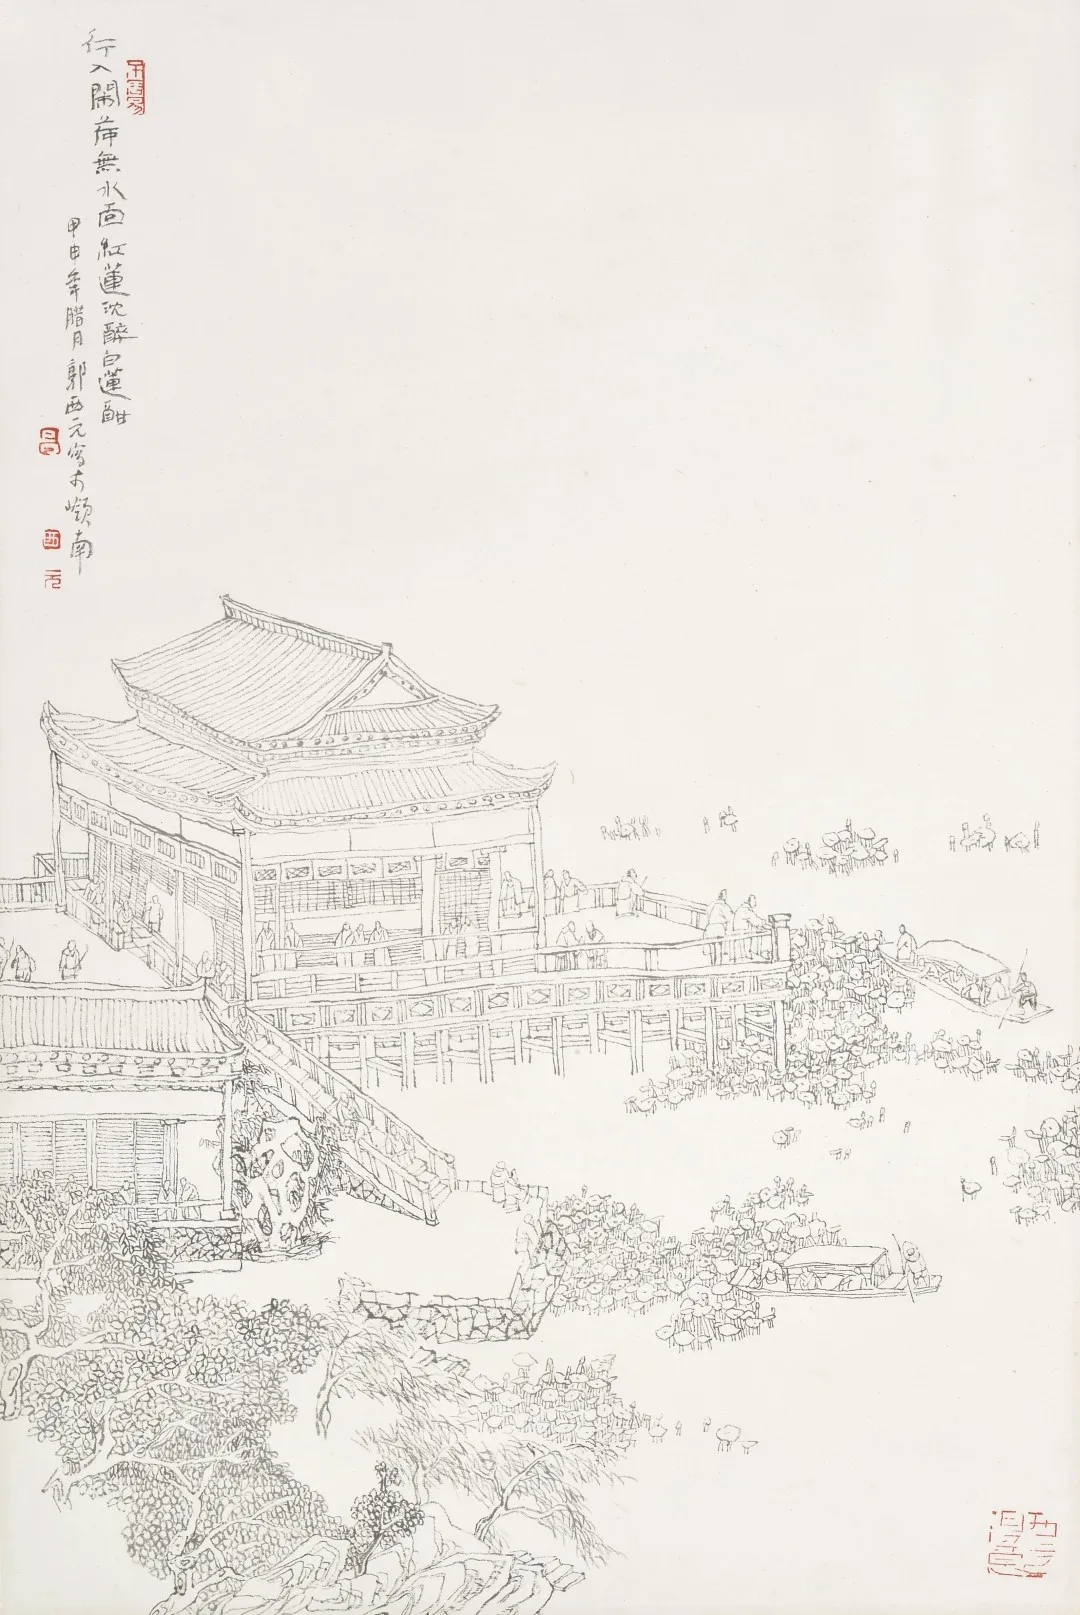 行入鬧荷無水面紅蓮沈醉白蓮酣
甲申年腊月郭西元寫於嶺南
西
元